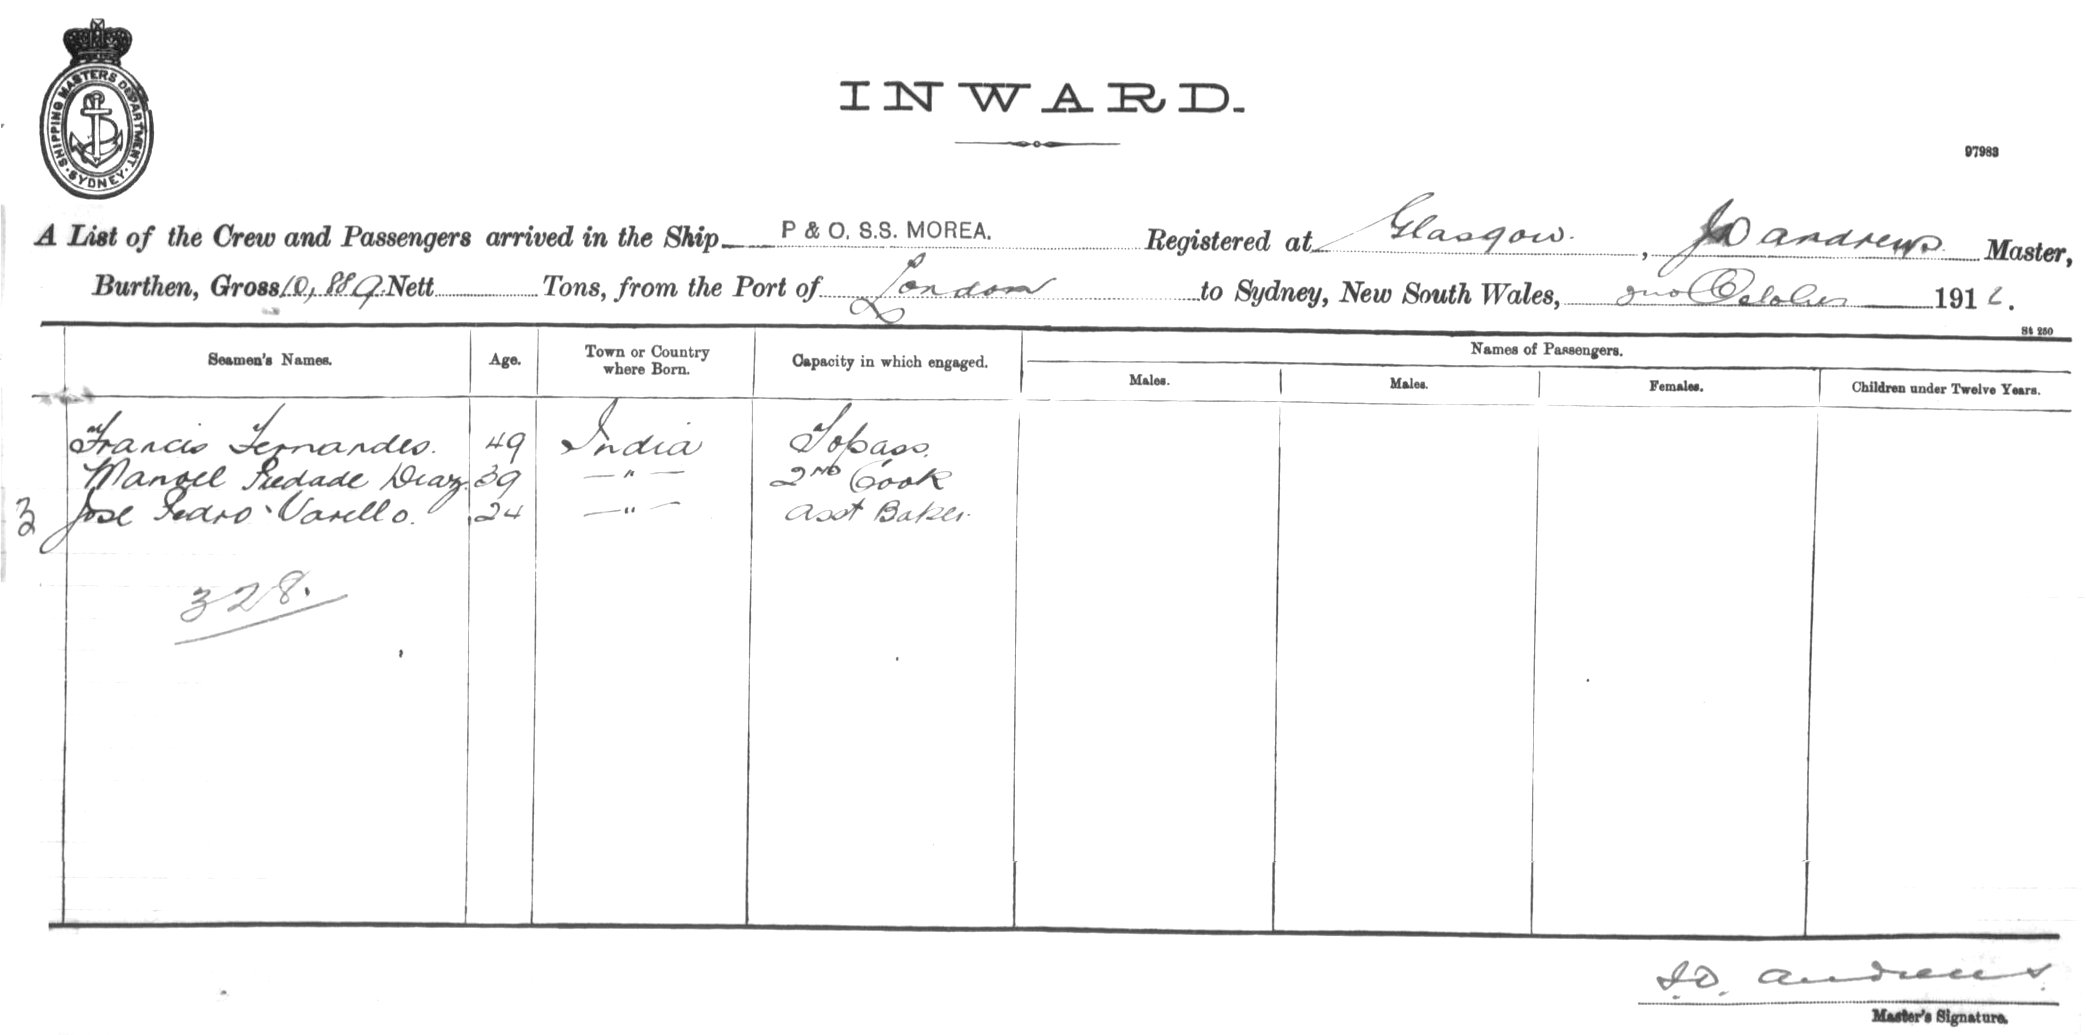 SHIPPING MASTERS DEPARTMENT
SYDNEY
INWARD.
97983
A List of the Crew and Passengers arrived in the Ship P & O. S.S. MOREA. Registered at Glasgow. , J D Andrews. Master,
Burthen, Gross 10,889. Nett Tons, from the Port of London to Sydney, New South Wales, 2nd October 1912.
St 250
Seamen's Names. Age. Town or Country where Born. Capacity in which engaged. Names of Passengers.
Males. Males. Females. Children under Twelve Years.
Francis Fernandes. 49 India Topass.
Manoel Piedade Diaz. 39 — " — 2nd Cook
3 Jose Pedro Varello. 24 — " — Asst Baker.
328.
J.D. Andrews.
Master's Signature.